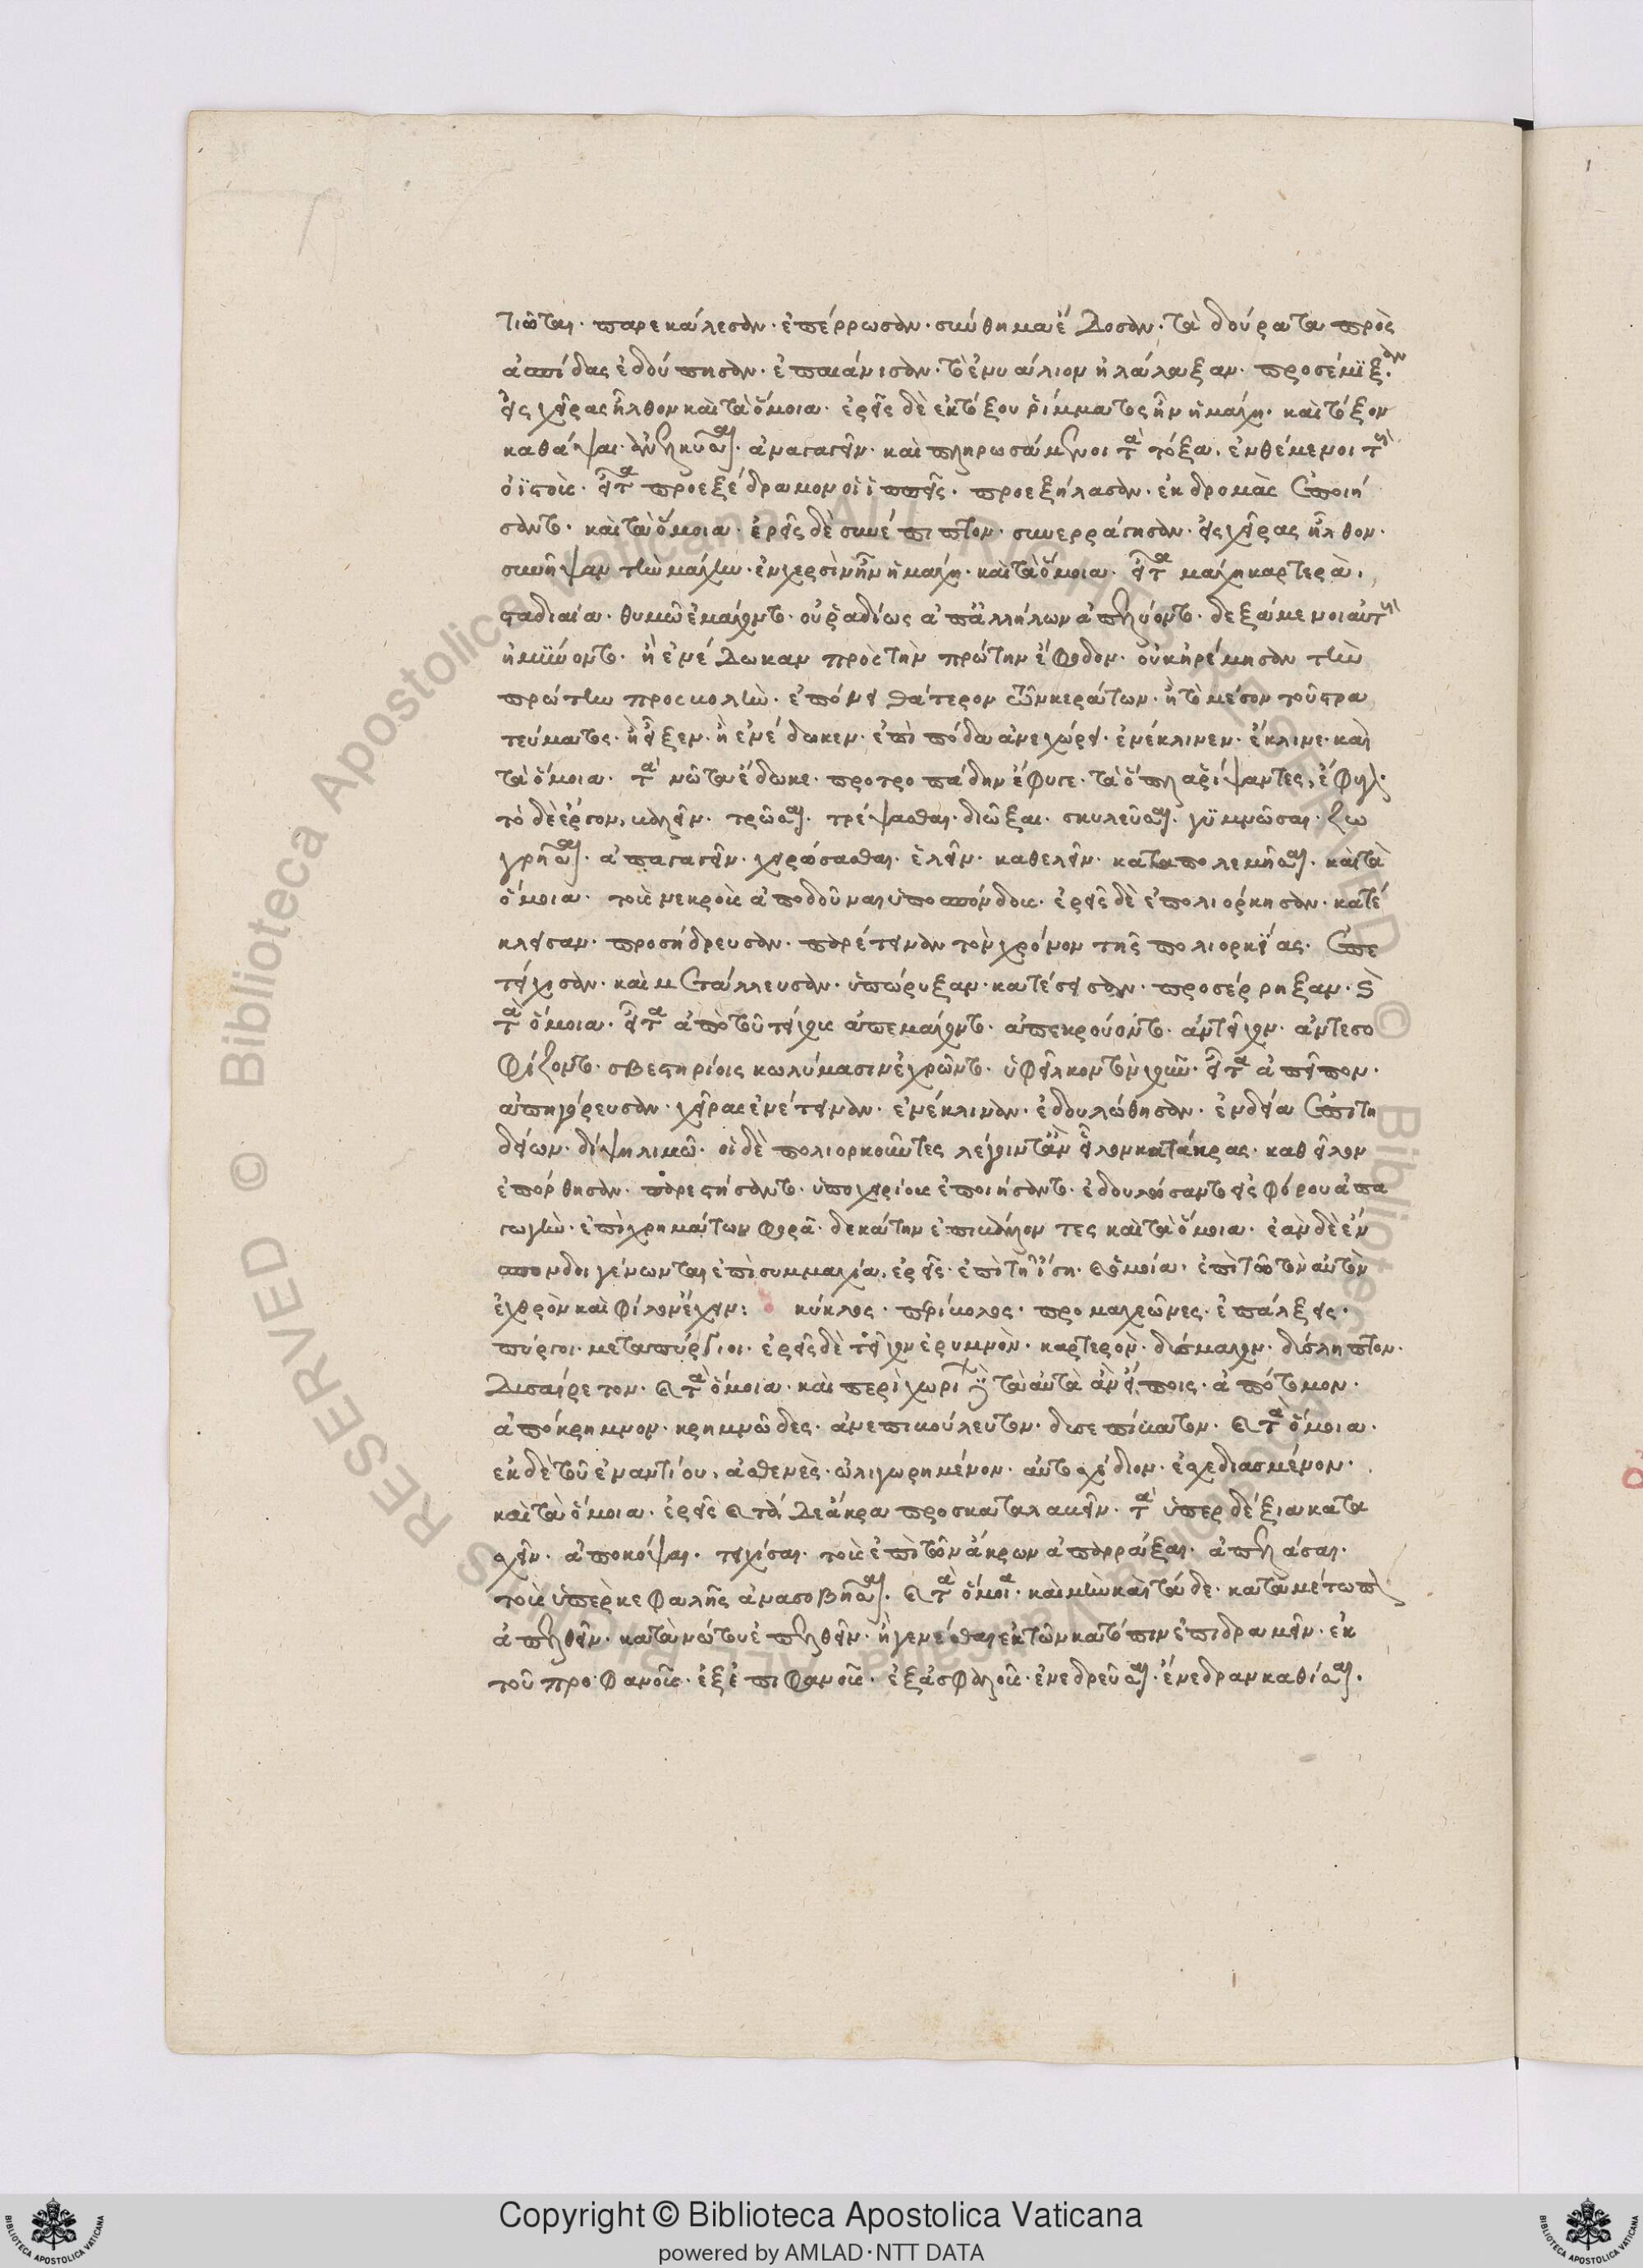 τιῶται· παρεκάλεσαν· ἐπέρρωσαν· σύνθημα ἔδοσαν· τὰ δούρατα πρὸς
ἀσπίδας ἐδούπησαν· ἐπαιάνισαν· τὸ ἐνυάλιον ἠλάλαξαν· προσέμϊξαν·
εἰς χεῖρας ἦλθον καὶ τὰ ὅμοια· ἐρεῖς δὲ ἐκ τόξου ῥίμματος ἦν ἡ μάχη· καὶ τόξον
ὀϊστοῖς· εἶτα προεξέδραμον οἱ ἱππεῖς· προεξήλασαν· ἐκδρομὰς ἐποιή
σαντο· καὶ τὰ ὅμοια· ἐρεῖς δὲ συνέπιπτον· συνερράγησαν· εἰς χεῖρας ἦλθον·
συνῆψαν τὴν μάχην· ἐν χερσὶν ἦν ἡ μάχη· καὶ τὰ ὅμοια· εἶτα μάχη καρτερὰ·
σταδιαία· θυμῶ ἐμάχοντο· οὐ ῥαδίως ἀπ' ἀλλήλων ἀπελύοντο· δεξάμενοι αὐτοὺς
ἠμύνοντο· ἢ ἐνέδωκαν πρὸς τὴν πρώτην ἔφοδον· οὐκ ἠρέμησαν τὴν
πρώτην προσβολὴν· ἐπόνει θάτερον τῶν κεράτων· ἢ τὸ μέσον τοῦ στρα
τεύματος· ἢ εἶξεν· ἢ ἐνέδωκεν· ἐπὶ πόδα ἀνεχώρει· ἐνέκλινεν· ἔκλινε· καὶ
τὰ ὅμοια· τὰ νῶτα ἔδωκε· προτροπάδην ἔφυγε· τὰ ὅπλα ῥίψαντες, ἔφυγον·
τὸ δὲ ἔργον, βαλεῖν· τρῶσαι· τρέψασθαι· διῶξαι· σκυλεῦσαι· γυμνῶσαι· ζω
γρῆσαι· ἀπαγαγεῖν· χειρώσασθαι· ἑλεῖν· καθελεῖν· καταπολεμῆσαι· καὶ τὰ
ὅμοια· τοὺς νεκροὺς ἀποδοῦναι ὑποσπόνδους· ἐρεῖς δὲ ἐπολιόρκησαν· κατέ
κλεισαν· προσήδρευσαν· παρέτειναν τὸν χρόνον τῆς πολιορκίας· ἐπε
τείχισαν· καὶ μεταλλευσαν· ὑπώρυξαν· κατέσεισαν· προσέρρηξαν· καὶ
τὰ ὅμοια· εἶτα ἀπὸ τοῦ τείχους ἀπεμάχοντο· ἀπεκρούοντο· ἀντεῖχον· ἀντεσο
φίζοντο· σβεστηρίοις κωλύμασιν ἐχρῶντο· ὑφεῖλκον τὸν χοῦν· εἶτα ἀπεῖπον·
ἀπηγόρευσαν· χεῖρας ἐνέτειναν· ἐνέκλιναν· ἐδουλώθησαν· ἐνδεία ἐπιτη
δείων· δίψη λιμῶ· οἱ δὲ πολιορκοῦντες λέγοιντ' ἂν εἷλον κατάκρας· καθεῖλον
ἐπόρθησαν· παρεστήσαντο· ὑποχειρίους ἐποιήσαντο· ἐδουλώσαντο εἰς φόρου ἀπα
γωγὴν· ἐπὶ χρημάτων φορᾶ· δεκάτην ἐπιβάλλοντες καὶ τὰ ὅμοια· ἐὰν δὲ ἔν
σπονδοι γένωνται ἐπὶ συμμαχία, ἐρεῖς· ἐπὶ τῆ ἴση· καὶ ὁμοία· ἐπὶ τῶ τὸν αὐτὸν
ἐχθρὸν καὶ φίλον ἔχειν: κύκλος· περίβολος· προμαχεῶνες· ἐπάλξεις·
πύργοι· μεταπύργιοι· ἐρεῖς δὲ τεῖχον ἐρυμνὸν· καρτερὸν· δύσμαχον· δύσληπτον·
δυσαίρετον· καὶ τὰ ὅμοια· καὶ περὶ χωρίου τὰ αὐτὰ ἂν εἴποις· ἀπότομον·
ἀπόκρημνον· κρημνῶδες· ἀνεπιβούλευτον· δυσεπίβατον· καὶ τὰ ὅμοια·
ἐκ δὲ τοῦ ἐναντίου, ἀσθενὲς· ὠλιγωρημένον· αὐτοσχέδιον· ἐσχεδιασμένον·
καὶ τὰ ὅμοια· ἐρεῖς καὶ τάδε ἄκρα προσκαταλαβεῖν· τὰ ὑπερδέξια κατα
σχεῖν· ἀποκόψαι· τειχίσαι· τοὺς ἐπὶ τῶν ἄκρων ἀπαρράξαι· ἀπελάσαι·
τοὺς ὑπὲρ κεφαλῆς ἀνασοβῆσαι· καὶ τὰ ὅμοια· καὶ μὴν καὶ τάδε· κατὰ μέτωπον
ἀπελθεῖν· κατὰ νώτου ἐπελθεῖν· ἢ γενέσθαι ἐκ τῶν κατόπιν ἐπιδραμεῖν· ἐκ
τοῦ προφανοῦς· ἐξ ἐπιφανοῦς· ἐξ ἀσφαλοῦς· ἐνεδρεῦσαι· ἔνεδραν καθίσαι·
Copyright © Biblioteca Apostolica Vaticana
powered by AMLAD·NTT DATA